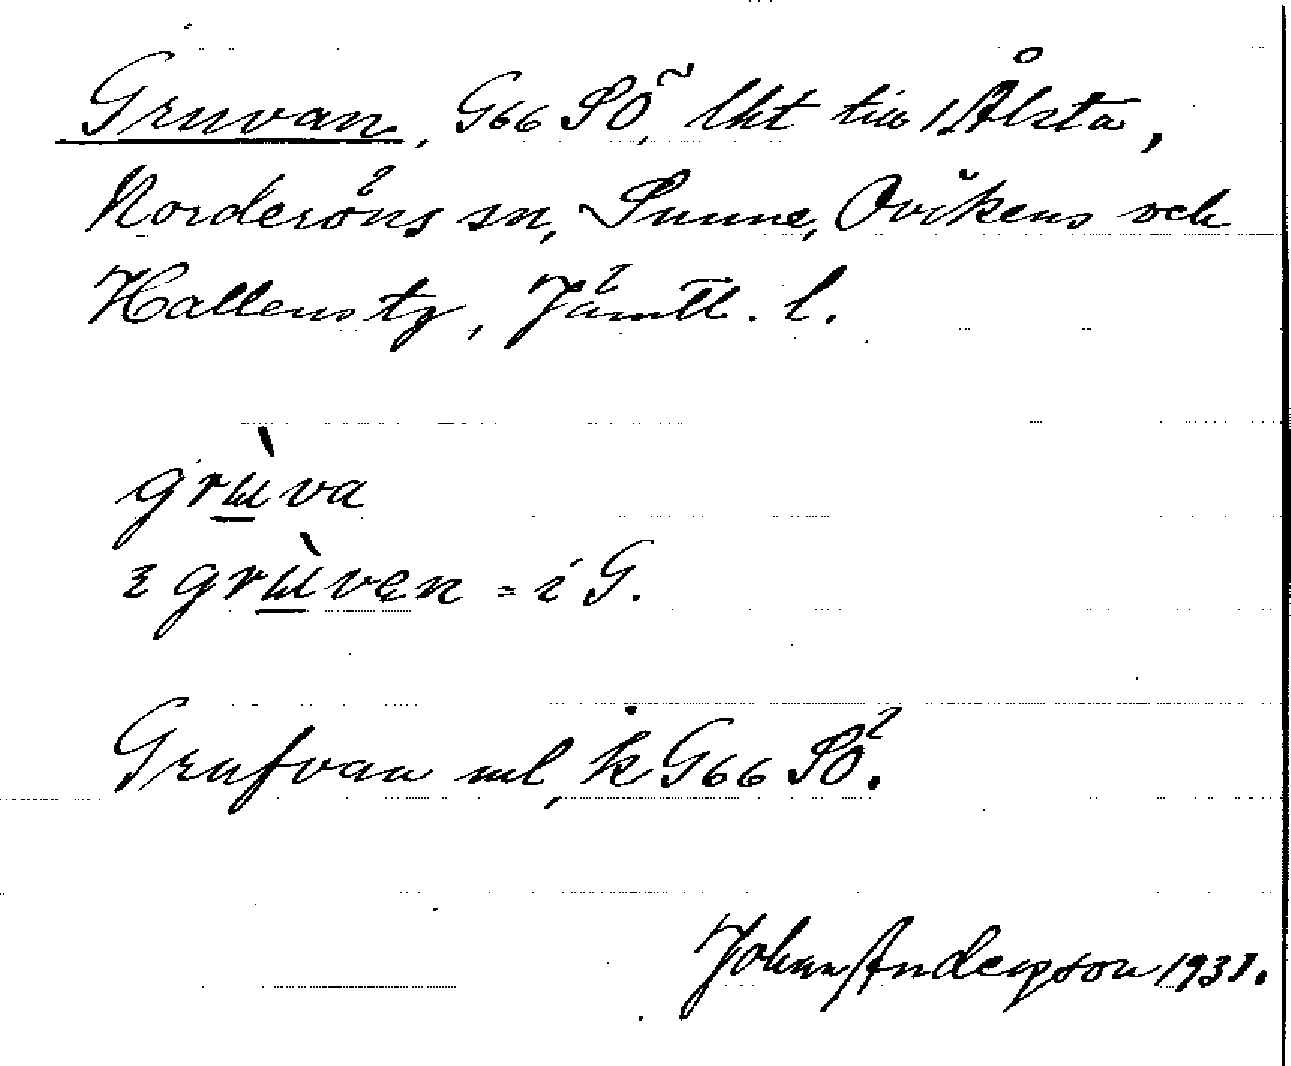 Gruvan, G66 SÖ, lht till 1 Ålsta,
Norderöns sn, Sunne, Ovikens och
Hallens tg, Jämtl. l.
grɯ̀va
grɯ̀ven = i G.
Grufvan ml, k G66 SÖ.
Johan Anderson 1931.